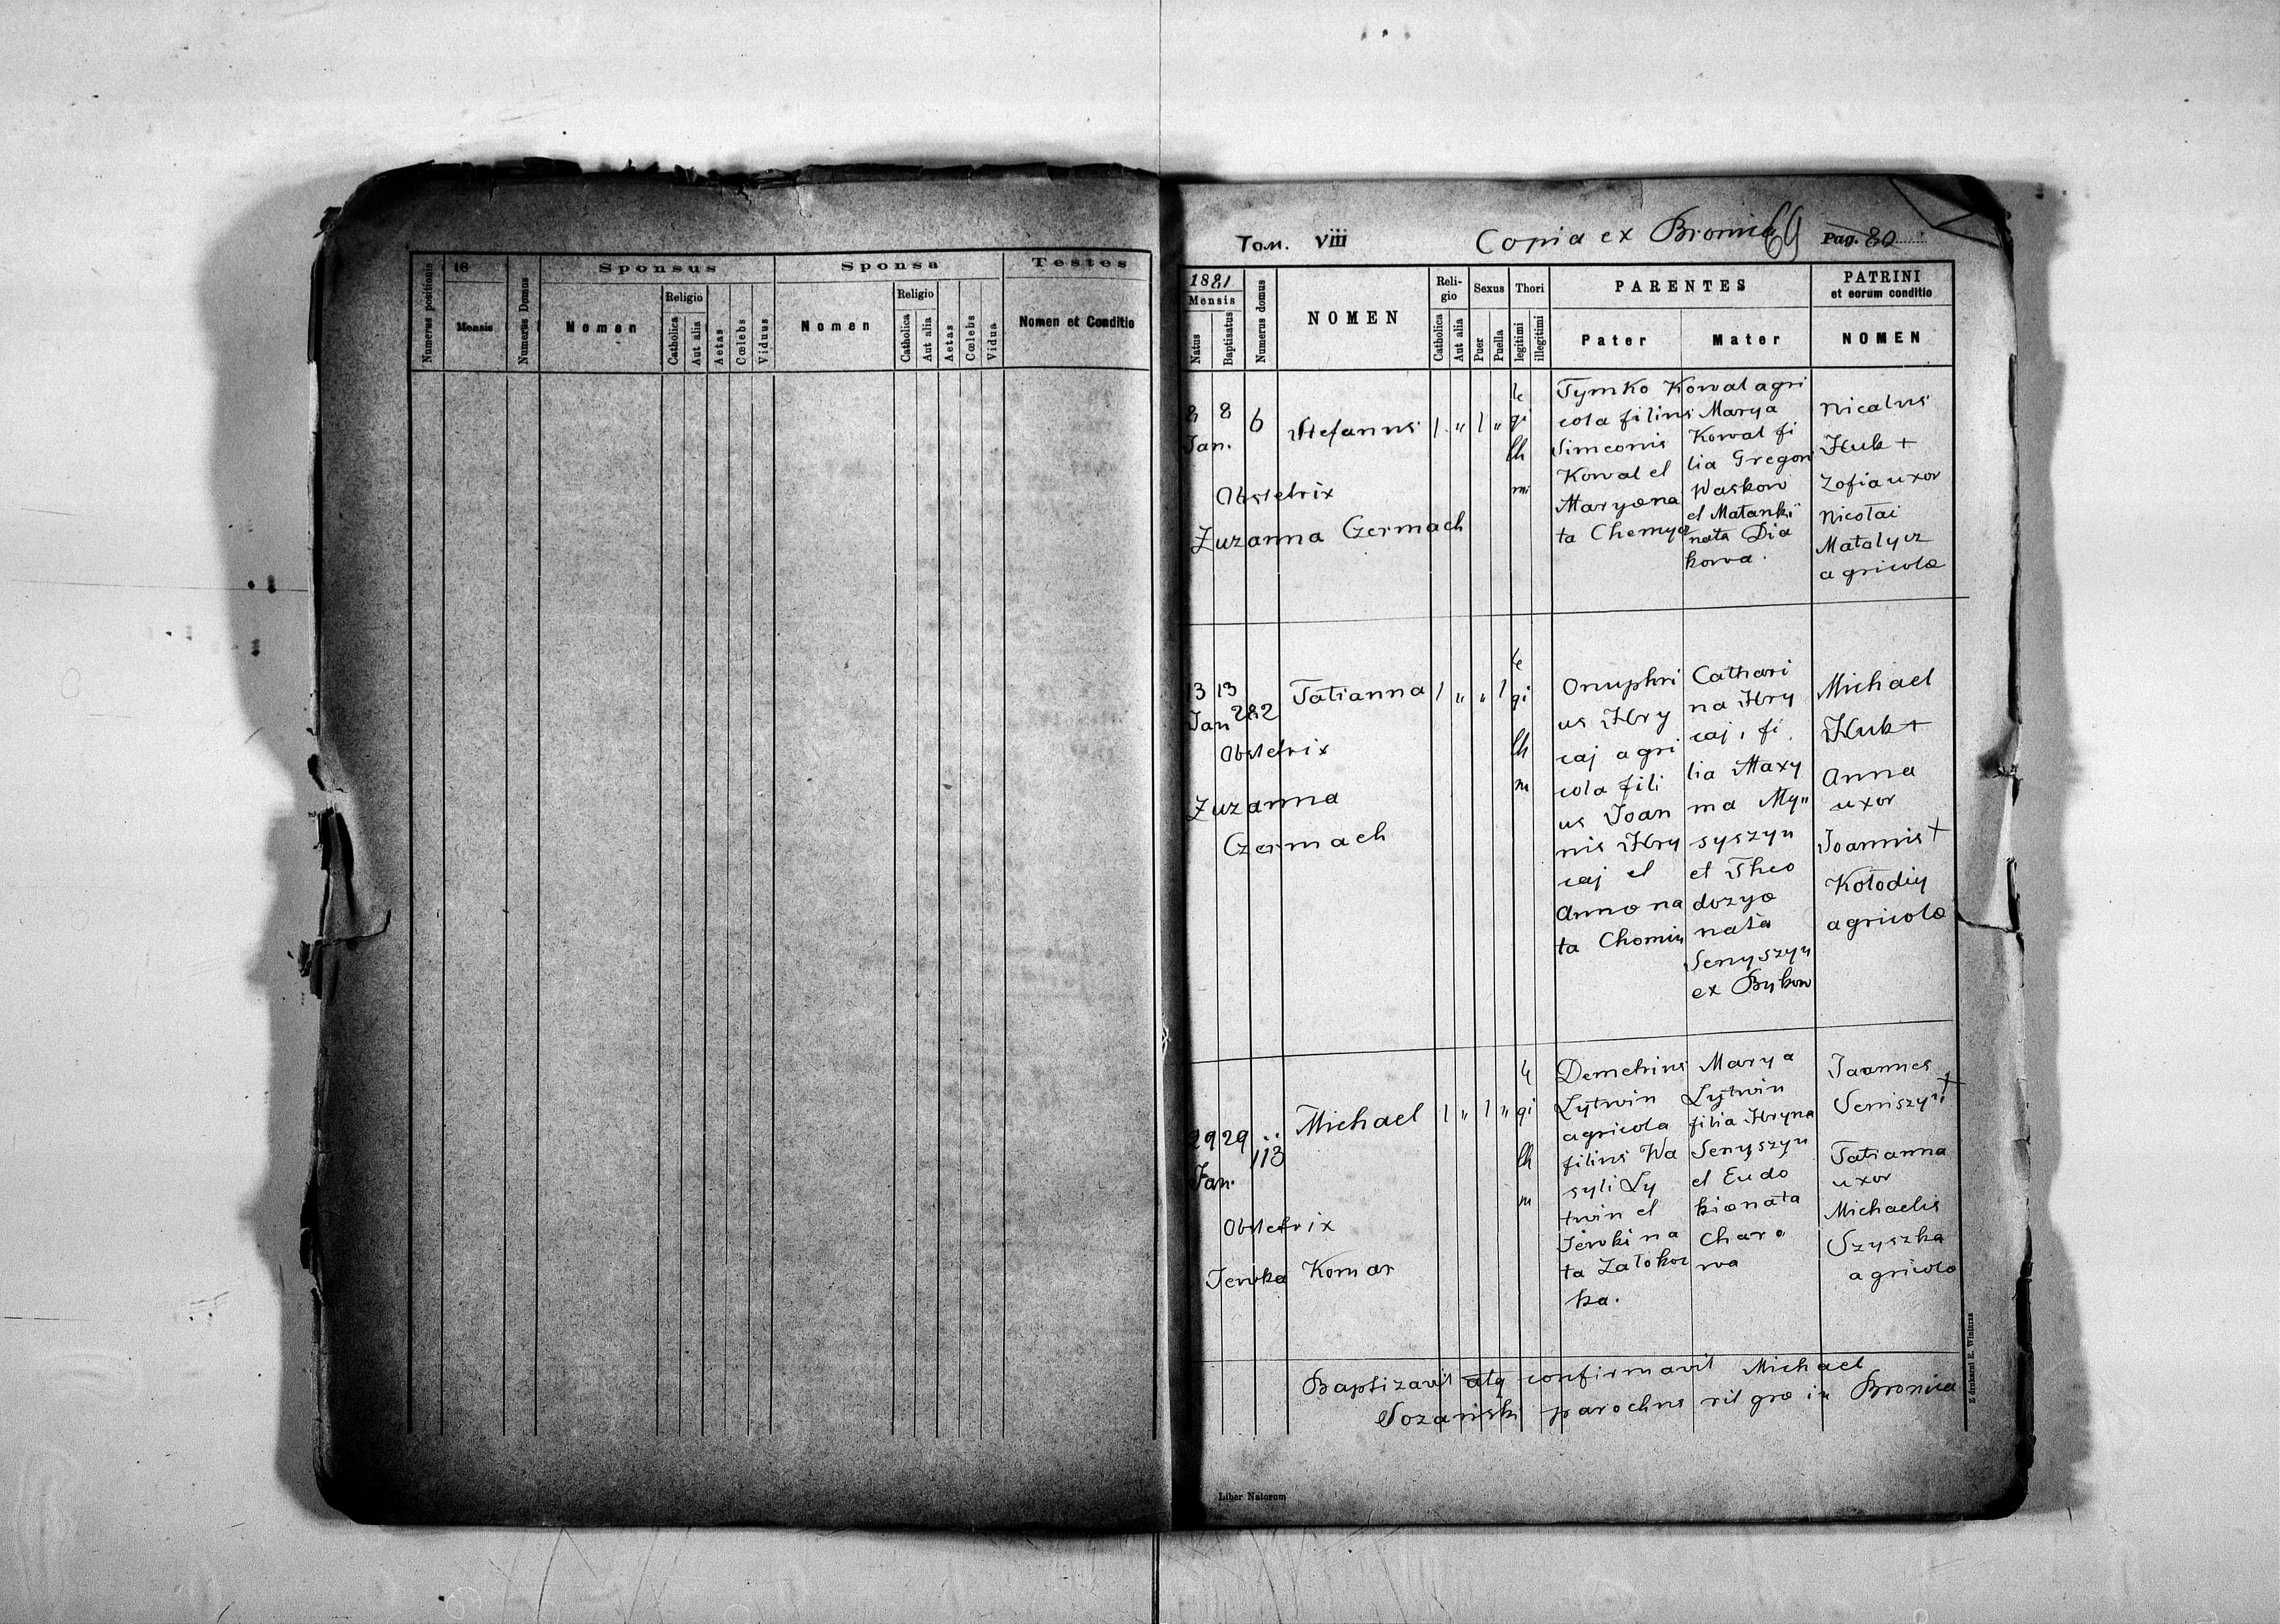 Numerus positionis
18
Mensis
Numerus Domus
Sponsus
Nomen
Religio
Catholica
Aut alia
Aetas
Cœlebs
Viduus
Sponsa
Nomen
Religio
Catholica
Aut alia
Aetas
Cœlebs
Vidua
Testes
Nomen et Conditio
Том. VIII
Copia ex Bronica
69
Pag. 80
1881
Mensis
Natus
Baptisatus
Numerus domus
NOMEN
Reli-
gio
Catholica
Aut alia
Sexus
Puer
Puella
Thori
legitimi
illegitimi
PARENTES
Pater
Mater
PATRINI
et eorum conditio
NOMEN
8 8
Jan.
6
Stefanus
1 „ 1 „
le
gi
th
mi
Obstetrix
Zuzanna Czermach
Tymko Kowal agri
cola filius
Simeonis
Kowal et
Maryæ na
ta Chemycz
Marya
Kowal fi
lia Gregori
Waskow
et Matanki
nata Dia
kowa.
Nicalus
Hub +
Zofia uxor
Nicolai
Matalycz
agricolæ
13 13
Jan
282
Tatianna
1 „ „ 1
le
gi
th
m
Obstetrix
Zuzanna
Czermach
Onuphri
us Hry
caj agri
cola fili
us Joan
nis Hry
caj et
Annæ na
ta Chomin
Cathari
na Hry
caj, fi
lia Maxy
ma My„
syszyn
et Theo
dozyæ
nata
Senyszyn
ex Bykow
Michael
Hub +
Anna
uxor
Joannis +
Kołodiy
agricolæ
29 29
Jan.
113
Michael
1 „ 1 „
le
gi
th
m
Obstetrix
Jewka Komar
Demetrius
Lytwin
agricola
filius Wa
syli Ly
twin et
Jewki na
ta Załokoc
ka.
Marya
Lytwin
filia Hryna
Senyszyn
et Eudo
kiæ nata
Chara
wa
Joannes
Seniszyn +
Tatianna
uxor
Michaelis
Szyszka
agricola
Baptizavit atq confirmavit Michael
Sozański parochus rit græ in Bronica
Liber Natorum
Z drukarni E. Winiarza